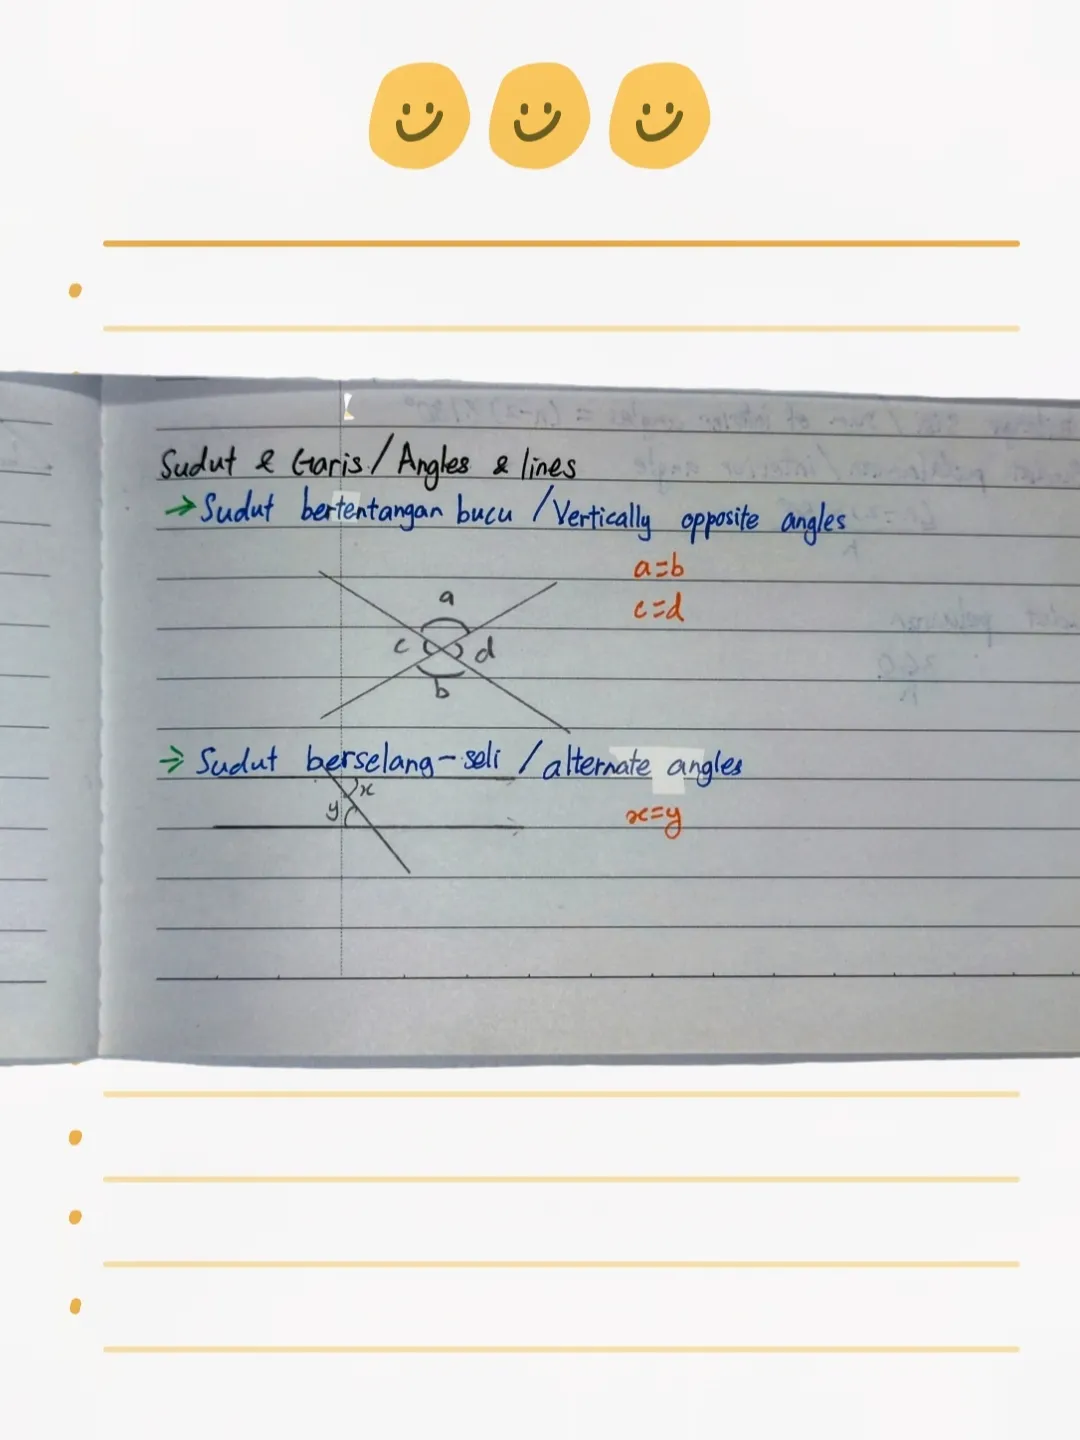 Sudut & Garis / Angles & lines
→ Sudut bertentangan bucu / Vertically opposite angles
a=b
c=d
a
c
d
b
⇒ Sudut berselang-seli / alternate angles
x
y
x=y